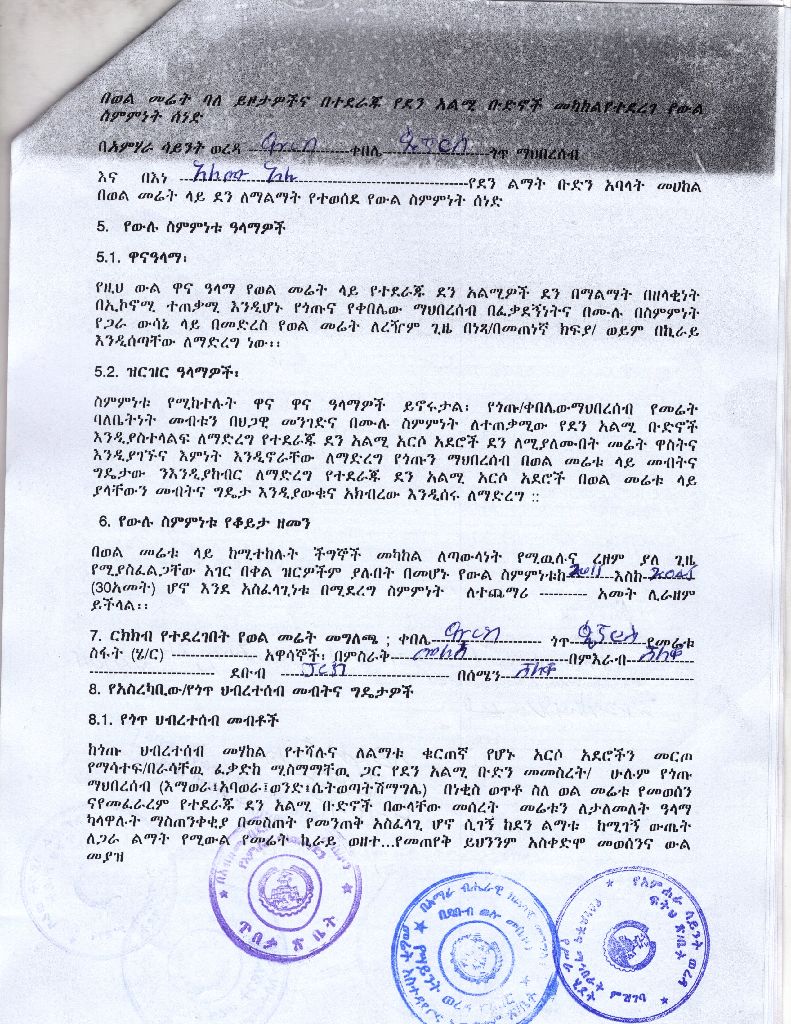 በወል መሬት ባለ ይዞታዎችና በተደራጁ የደን አልሚ ቡድኖች መካከልየተደረገ የውል
ስምምነት ሰነድ
በአምሃራ ሳይንት ወረዳ ቀበሌ ጎጥ ማህበረሰብ
እና በእነ የደን ልማት ቡድን አባላት መሀከል
በወል መሬት ላይ ደን ለማልማት የተወሰደ የውል ስምምነት ሰነድ
5. የውሉ ስምምነቱ ዓላማዎች
5.1. ዋናዓላማ፡
የዚህ ውል ዋና ዓላማ የወል መሬት ላይ የተደራጁ ደን አልሚዎች ደን በማልማት በዘላቂነት
በኢኮኖሚ ተጠቃሚ እንዲሆኑ የጎጡና የቀበሌው ማህበረሰብ በፈቃደኝነትና በሙሉ በስምምነት
የጋራ ውሳኔ ላይ በመድረስ የወል መሬት ለረዥም ጊዜ በነጻ/በመጠነኛ ክፍያ/ ወይም በኪራይ
እንዲሰጣቸው ለማድረግ ነው፡፡
5.2. ዝርዝር ዓላማዎች፡
ስምምነቱ የሚከተሉት ዋና ዋና ዓላማዎች ይኖሩታል፡ የጎጡ/ቀበሌውማህበረሰብ የመሬት
ባለቤትነት መብቱን በህጋዊ መንገድና በሙሉ ስምምነት ለተጠቃሚው የደን አልሚ ቡድኖች
እንዲያስተላልፍ ለማድረግ የተደራጁ ደን አልሚ አርሶ አደሮች ደን ለሚያለሙበት መሬት ዋስትና
እንዲያገኙና እምነት እንዲኖራቸው ለማድረግ የጎጡን ማህበረሰብ በወል መሬቱ ላይ መብትና
ግዴታው ንእንዲያከብር ለማድረግ የተደራጁ ደን አልሚ አርሶ አደሮች በወል መሬቱ ላይ
ያላቸውን መብትና ግዴታ እንዲያውቁና አክብረው እንዲሰሩ ለማድረግ ::
6. የውሉ ስምምነቱ የቆይታ ዘመን
በወል መሬቱ ላይ ከሚተከሉት ችግኞች መካከል ለጣውላነት የሚዉሉና ረዘም ያለ ጊዜ
የሚያስፈልጋቸው አገር በቀል ዝርዎችም ያሉበት በመሆኑ የውል ስምምነቱከ 2011 እስከ
(30አመት) ሆኖ እንደ አስፈላጊነቱ በሚደረግ ስምምነት ለተጨማሪ ---------- አመት ሊራዘም
ይችላል፡፡
7. ርክክብ የተደረገበት የወል መሬት መግለጫ ; ቀበሌ ጎጥ የመሬቱ
ስፋት (ሄ/ር) ----------------- አዋሳኞች፡ በምስራቅ በምእራብ
ደቡብ በሰሜን
8. የአስረካቢው/የጎጥ ህብረተሰብ መብትና ግዴታዎች
8.1. የጎጥ ህብረተሰብ መብቶች
ከጎጡ ህብረተሰብ መሃከል የተሻሉና ለልማቱ ቁርጠኛ የሆኑ አርሶ አደሮችን መርጦ
የማሳተፍ/በራሳቸዉ ፈቃድከ ሚስማማቸዉ ጋር የደን አልሚ ቡድን መመስረት/ ሁሉም የጎጡ
ማህበረሰብ (እማወራ፤አባወራ፤ወንድ፤ሴትወጣትሽማግሌ) በነቂስ ወጥቶ ስለ ወል መሬቱ የመወሰን
ናየመፈራረም የተደራጁ ደን አልሚ ቡድኖች በውላቸው መሰረት መሬቱን ለታለመለት ዓላማ
ካላዋሉት ማስጠንቀቂያ በመስጠት የመንጠቅ አስፈላጊ ሆኖ ሲገኝ ከደን ልማቱ ከሚገኝ ውጤት
ለጋራ ልማት የሚውል የመሬት ኪራይ ወዘተ...የመጠየቅ ይህንንም አስቀድሞ መወሰንና ውል
መያዝ
ጥበቃ ጽ/ቤት
የአምሐራ ሳይንት ወረዳ
ፍትህ ጽ/ቤት